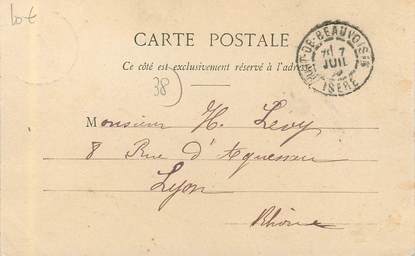 lot
CARTE POSTALE
Ce côté est exclusivement réservé à l'adre
38
PONT-DE-BEAUVOISIN
7
JUIL
ISÈRE
Monsieur H. Levy
8 Rue d'Aguesseau
Lyon
Rhône